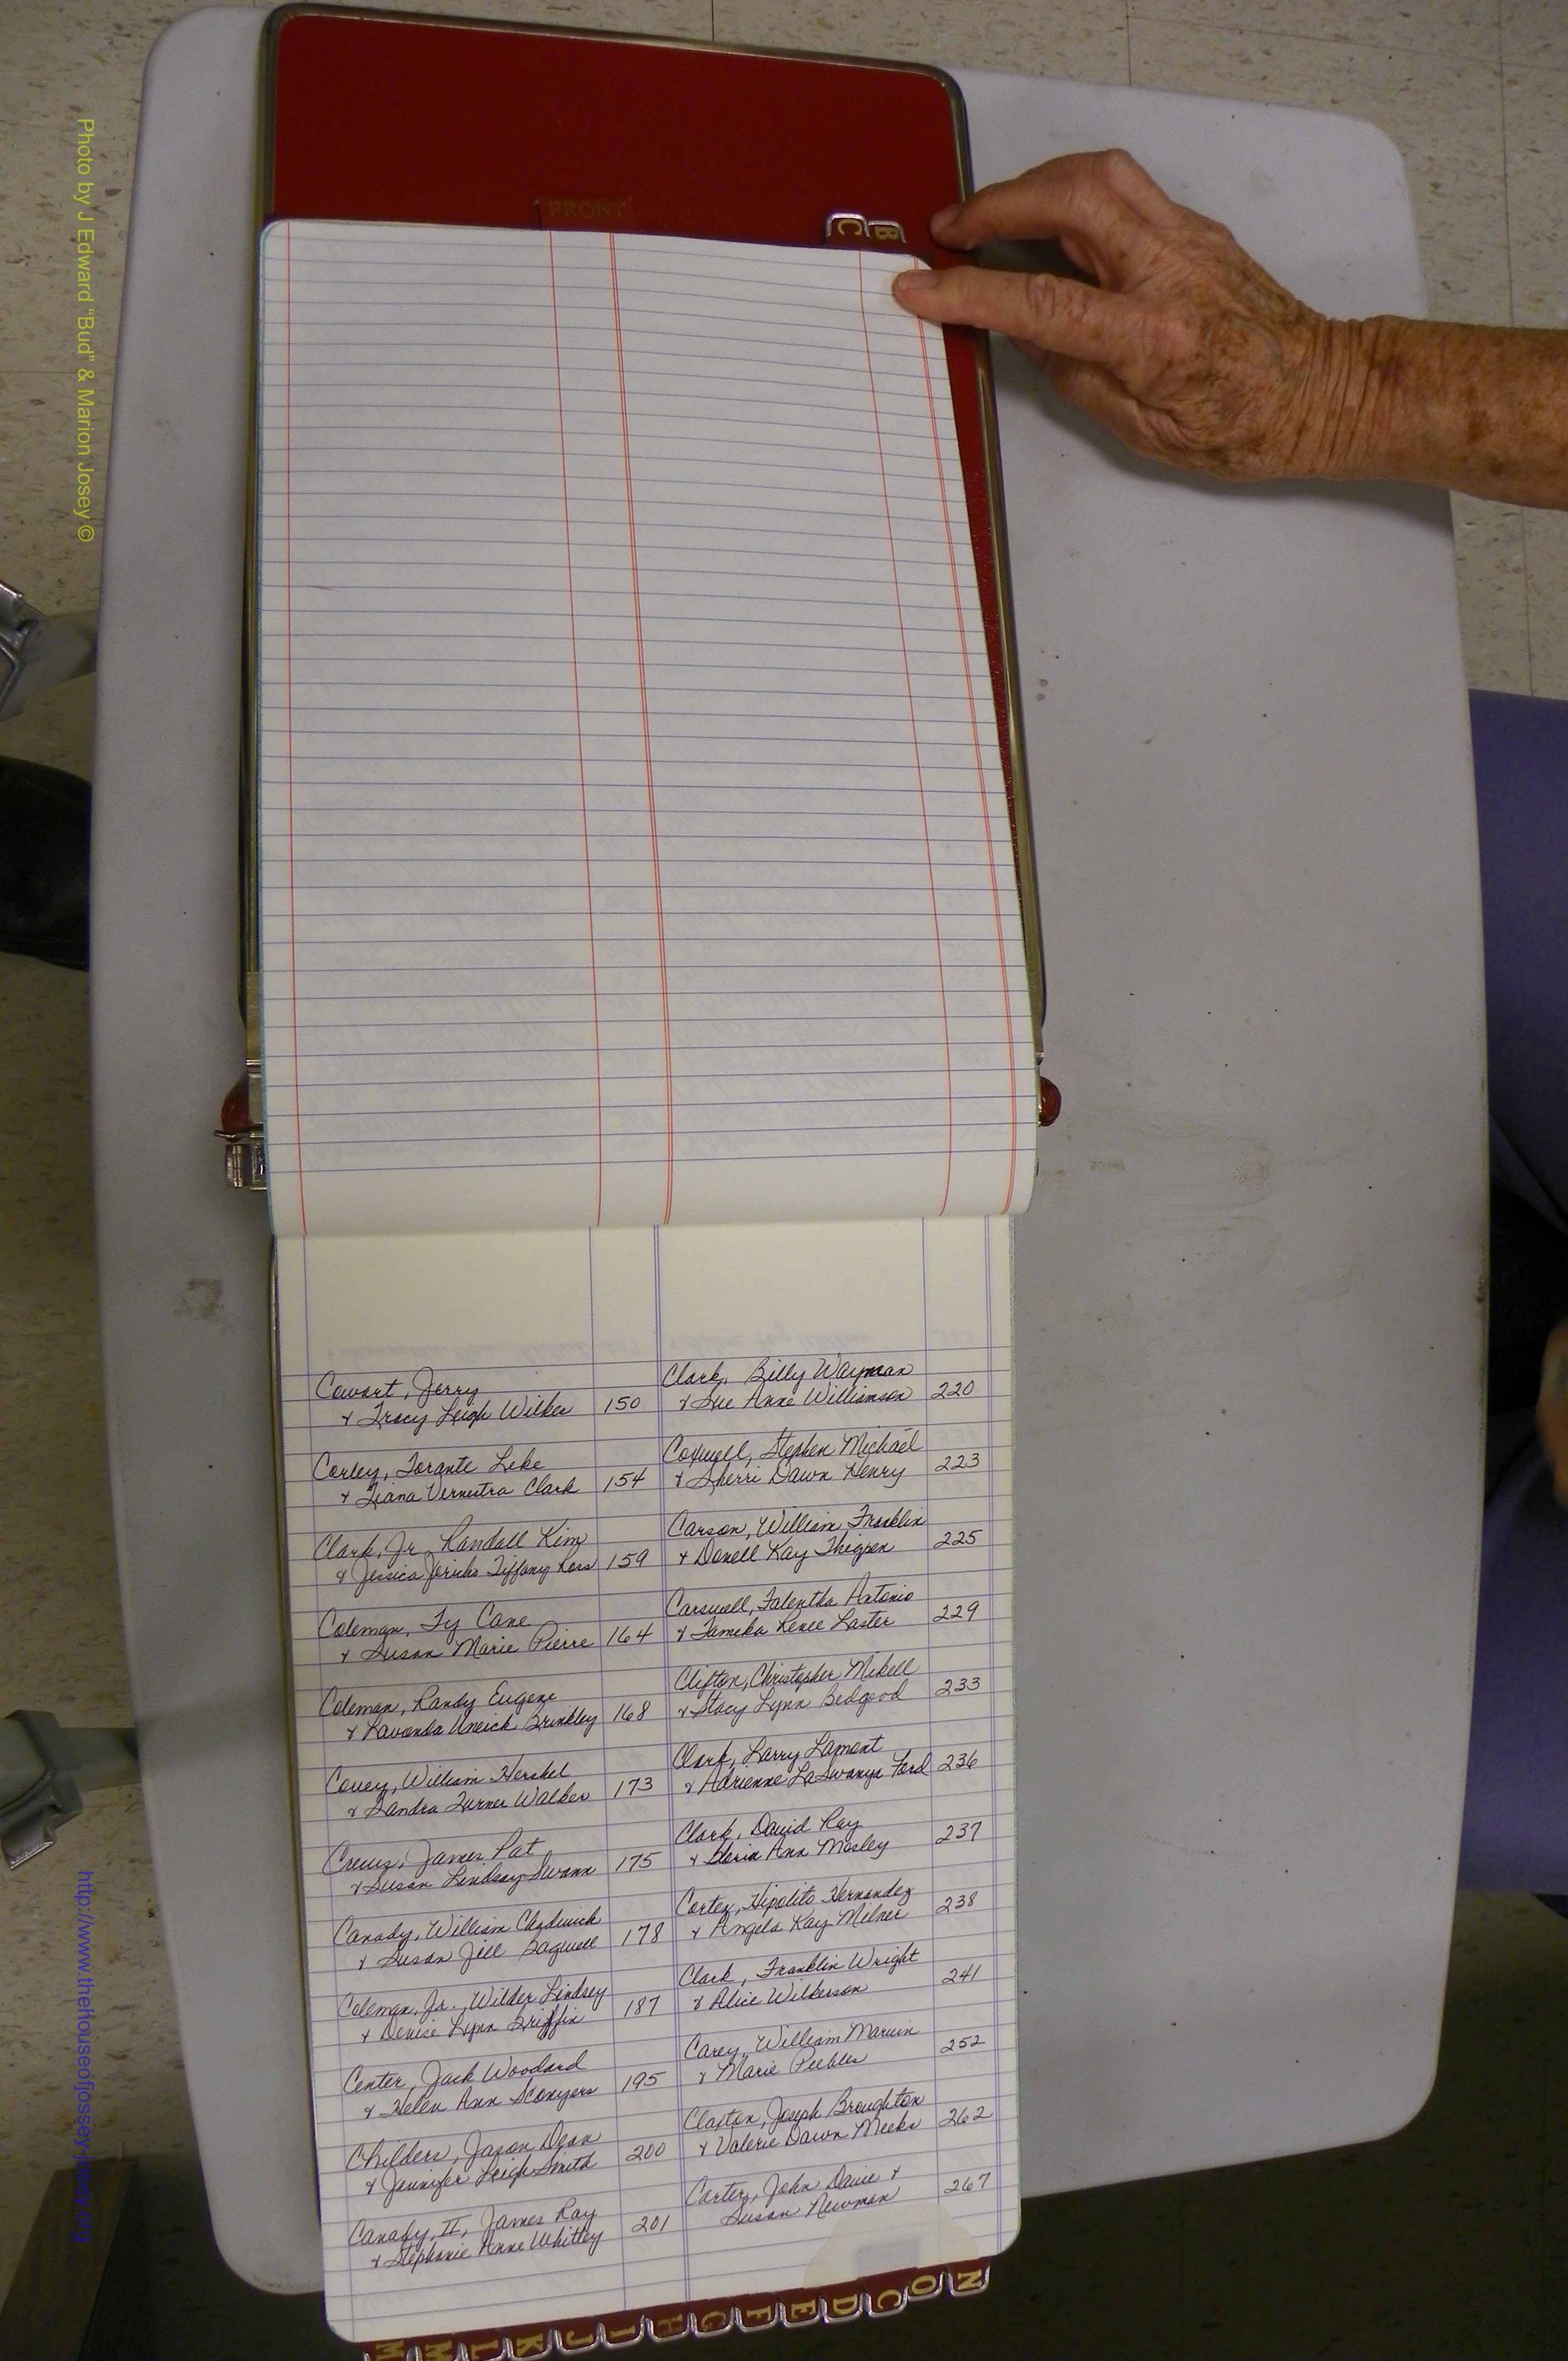 FRONT
B
C
Cowart, Jerry
& Tracy Leigh Wilkes 150
Corley, Torante Leke
& Tiana Vernestra Clark 154
Clark, Jr. Randall Kim
& Jessica Tiffany 159
Coleman, Ty Cane
& Susan Marie Pierre 164
Coleman, Randy Eugene
& Lavonda Brinkley 168
Covey, William Hershel
& Sandra Turner Walker 173
Crews, James Pat
& Susan Lindsay Swann 175
Canady, William Chadwick
& Susan Jill Bagwell 178
Coleman, Jr., Wilder Lindsey
& Denise Lynn Griffin 187
Center, Jack Woodard
& Helen Ann Sconyers 195
Childers, Jason Dean
& Jennifer Leigh Smith 200
Canady, II, James Ray
& Stephanie Anne Whitley 201
Clark, Billy Wayman
& Sue Anne Williamson 220
Coxwell, Stephen Michael
& Sherri Dawn Henry 223
Carson, William Franklin
& Donell Kay Thigpen 225
Carswell, Talentha Antonio
& Tameka Renee Laster 229
Clifton, Christopher Mikell
& Stacy Lynn Bedgood 233
Clark, Larry Lamont
& Adrienne LaSwanya Ford 236
Clark, David Ray
& Gloria Ann Mosley 237
Cortez, Hipolito Hernandez
& Angela Kay Milner 238
Clark, Franklin Wright
& Alice Wilkerson 241
Carey, William Marvin
& Marie Peebles 252
Claxton, Joseph Broughton
& Valerie Dawn Meeks 262
Carter, John Davie &
Susan Newman 267
M M L K J I H G F E D C O N
Photo by J Edward "Bud" & Marion Josey ©
http://www.thehouseofjossey-josey.org